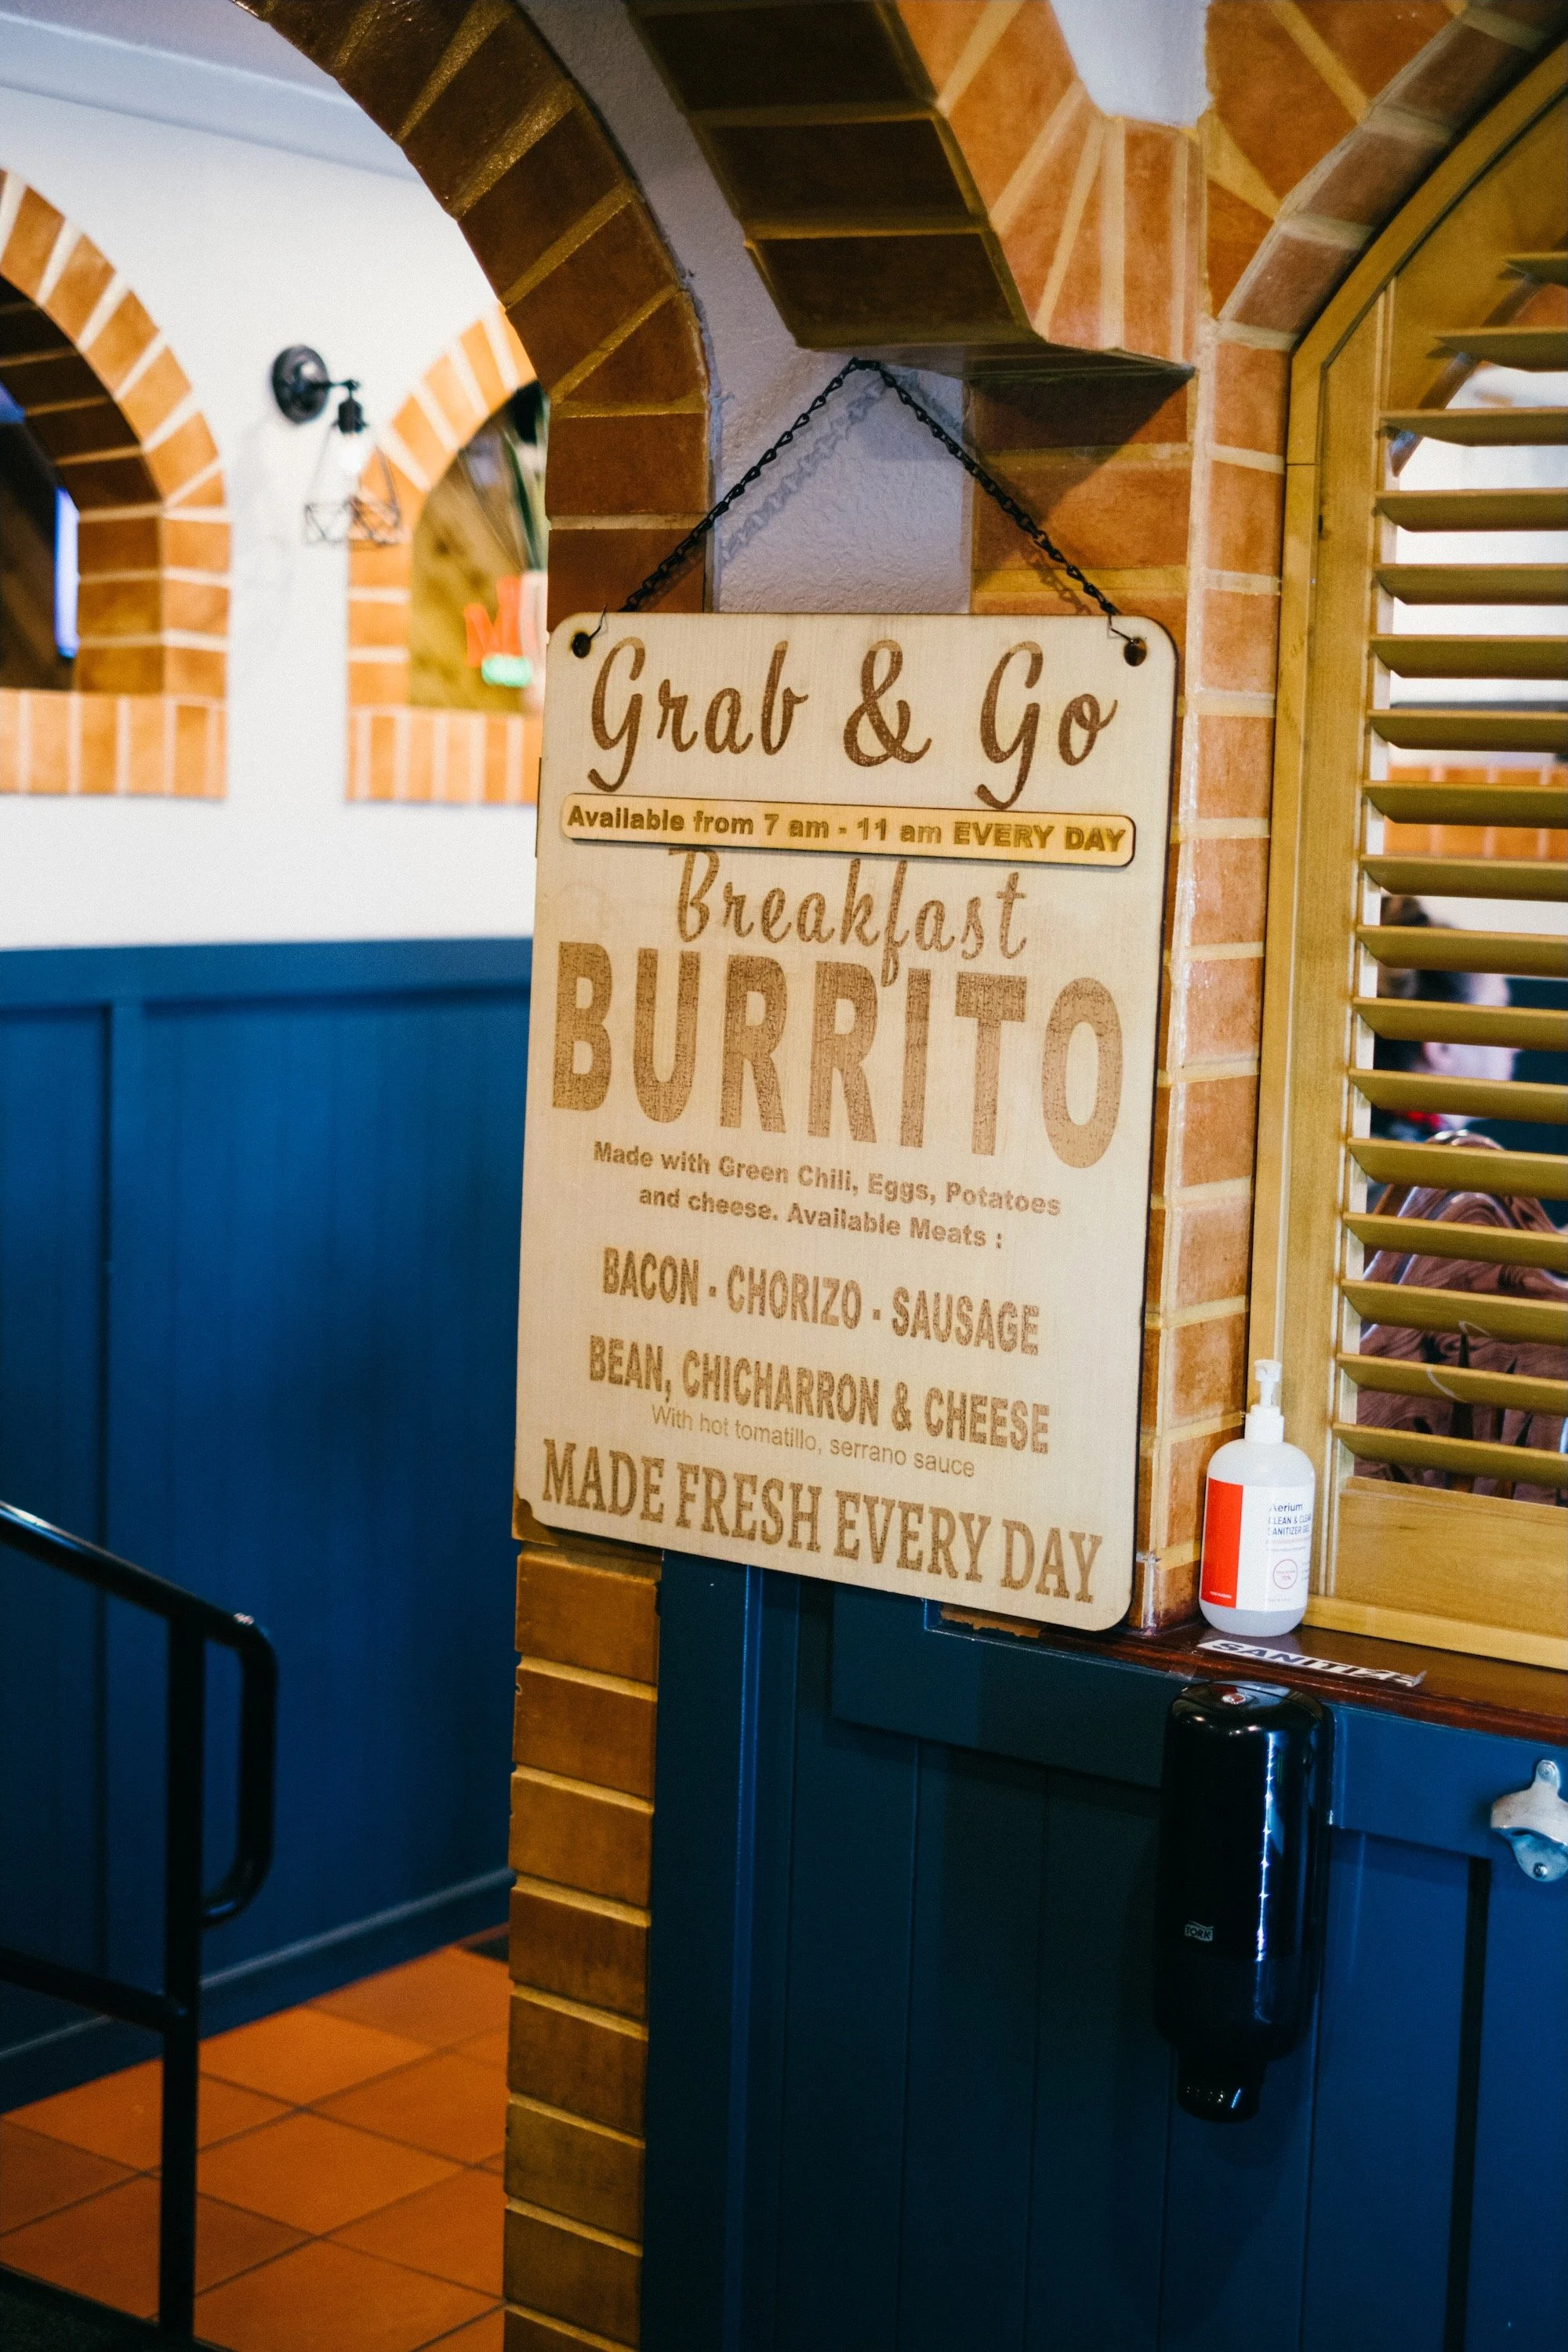 Grab & Go
Available from 7 am - 11 am EVERY DAY
Breakfast
BURRITO
Made with Green Chili, Eggs, Potatoes
and cheese. Available Meats :
BACON · CHORIZO · SAUSAGE
BEAN, CHICHARRON & CHEESE
With hot tomatillo, serrano sauce
MADE FRESH EVERY DAY
Aerium
CLEAN & CLEAR
SANITIZER GEL
SANITIZE
TORK